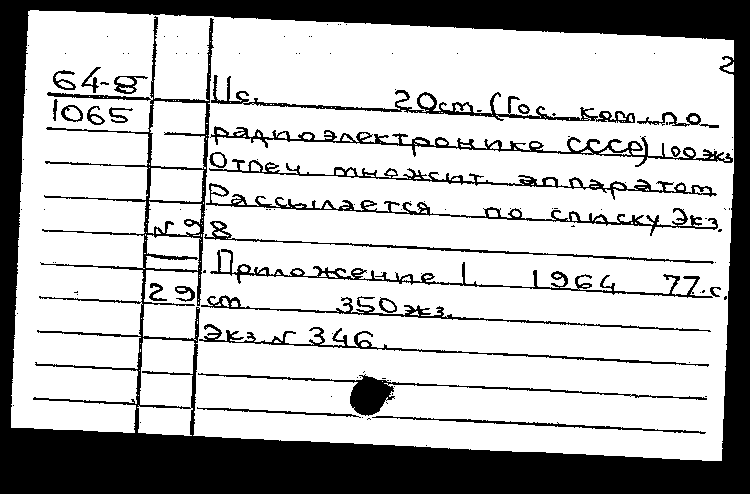 2
64-8 11с. 20ст. (Гос. ком. по
1065 радиоэлектронике СССР) 100 экз
Отпеч. множит. аппаратом
Рассылается по списку Экз.
№98
Приложение 1. 1964 77.с.
29 ст. 350 экз.
Экз. № 346.